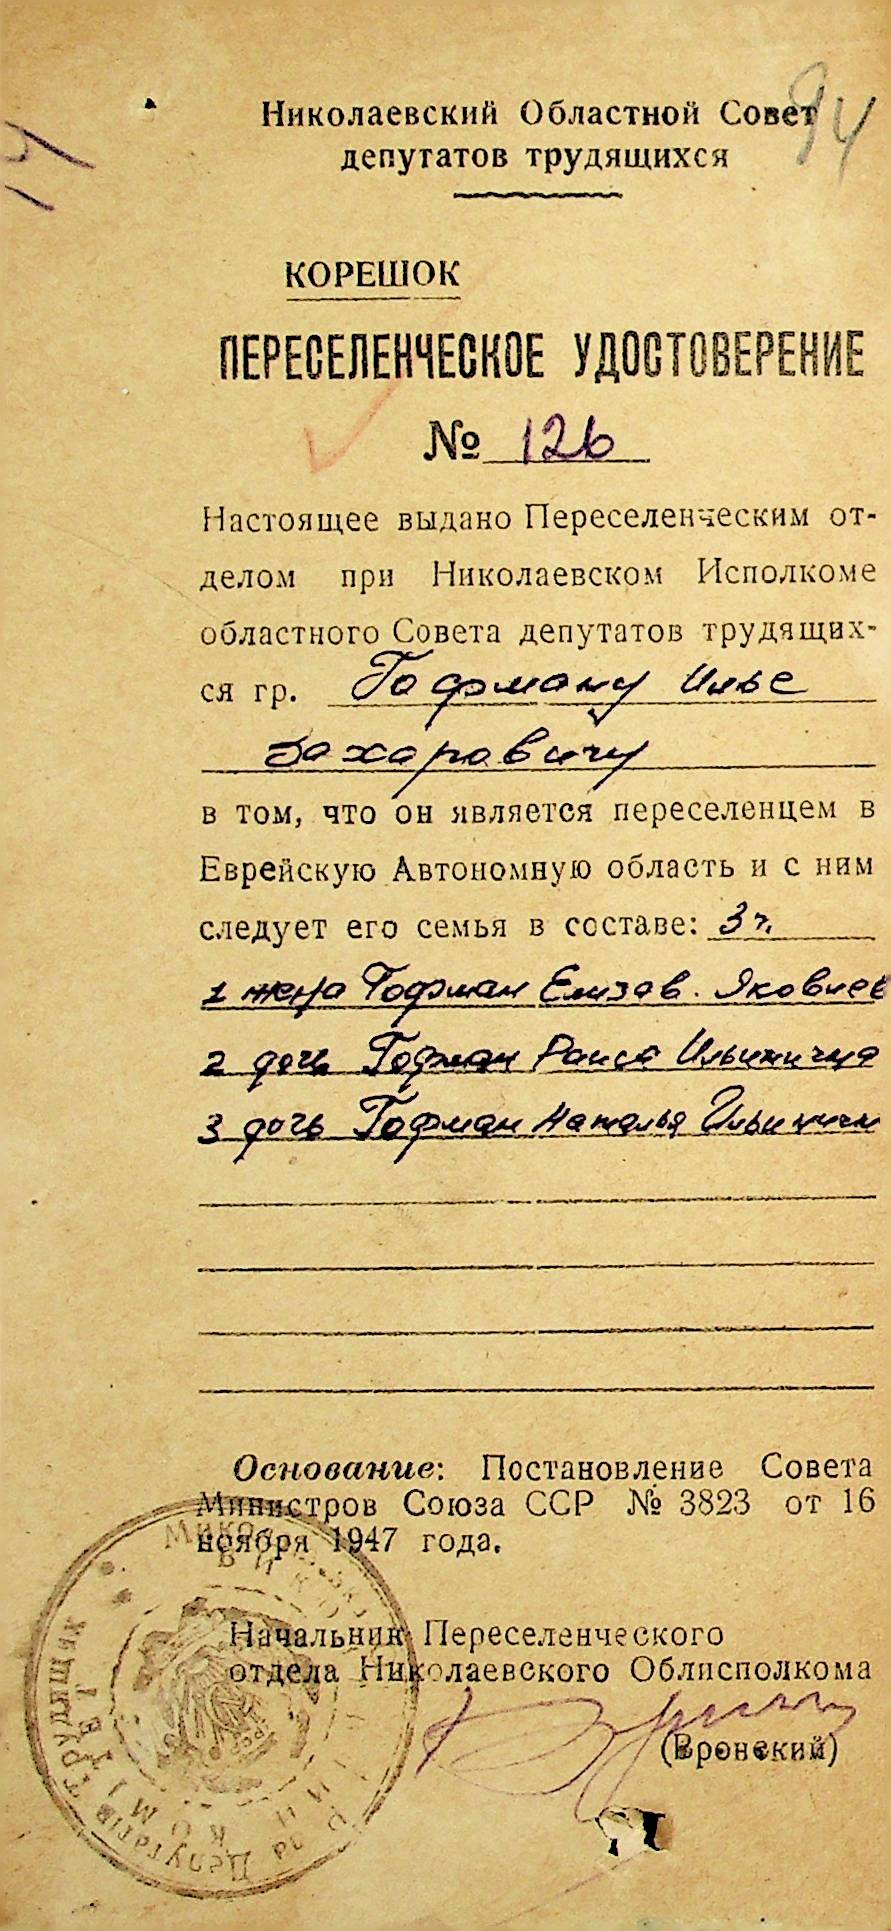 14
94
Николаевский Областной Совет
депутатов трудящихся
КОРЕШОК
ПЕРЕСЕЛЕНЧЕСКОЕ УДОСТОВЕРЕНИЕ
№ 126
Настоящее выдано Переселенческим от-
делом при Николаевском Исполкоме
областного Совета депутатов трудящих-
ся гр. Гофману Илье
Захаровичу
в том, что он является переселенцем в
Еврейскую Автономную область и с ним
следует его семья в составе: 3 ч.
1 жена Гофман Елизав. Яковлев
2 дочь Гофман Раиса Ильинична
3 дочь Гофман Наталья Ильинична
Основание: Постановление Совета
Министров Союза ССР № 3823 от 16
ноября 1947 года.
Начальник Переселенческого
отдела Николаевского Облисполкома
(Вронский)
Депутатів Трудящих